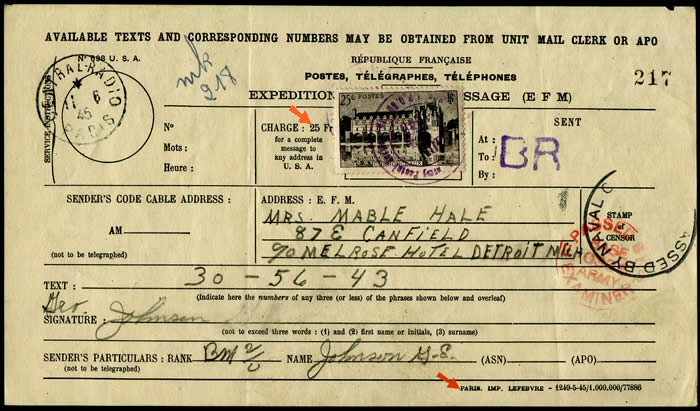 AVAILABLE TEXTS AND CORRESPONDING NUMBERS MAY BE OBTAINED FROM UNIT MAIL CLERK OR APO
N° 698 U. S. A.
RÉPUBLIQUE FRANÇAISE
POSTES, TÉLÉGRAPHES, TÉLÉPHONES
217
mk
218
CENTRAL-RADIO
6
45
PARIS
EXPEDITION
SSAGE (E F M)
SERVICE INSTRUCTIONS
N°
Mots :
Heure :
CHARGE : 25 Fr
for a complete
message to
any address in
U. S. A.
25F POSTES
SENT
At :
To :
By :
BR
SENDER'S CODE CABLE ADDRESS :
AM
(not to be telegraphed)
ADDRESS : E. F. M.
MRS. MABLE HALE
87 E CANFIELD
90 MELROSE HOTEL DETROIT MICH
STAMP
of
CENSOR
PASSED BY NAVAL C
PASSED
ARMY
EXAMINER
TEXT : 30 - 56 - 43
(Indicate here the numbers of any three (or less) of the phrases shown below and overleaf)
Geo.
SIGNATURE : Johnson
(not to exceed three words : (1) and (2) first name or initials, (3) surname)
SENDER'S PARTICULARS : RANK BM 2/c NAME Johnson G.E. (ASN) (APO)
(not to be telegraphed)
PARIS. IMP. LEFEBVRE - 1240-5-45/1.000.000/77886